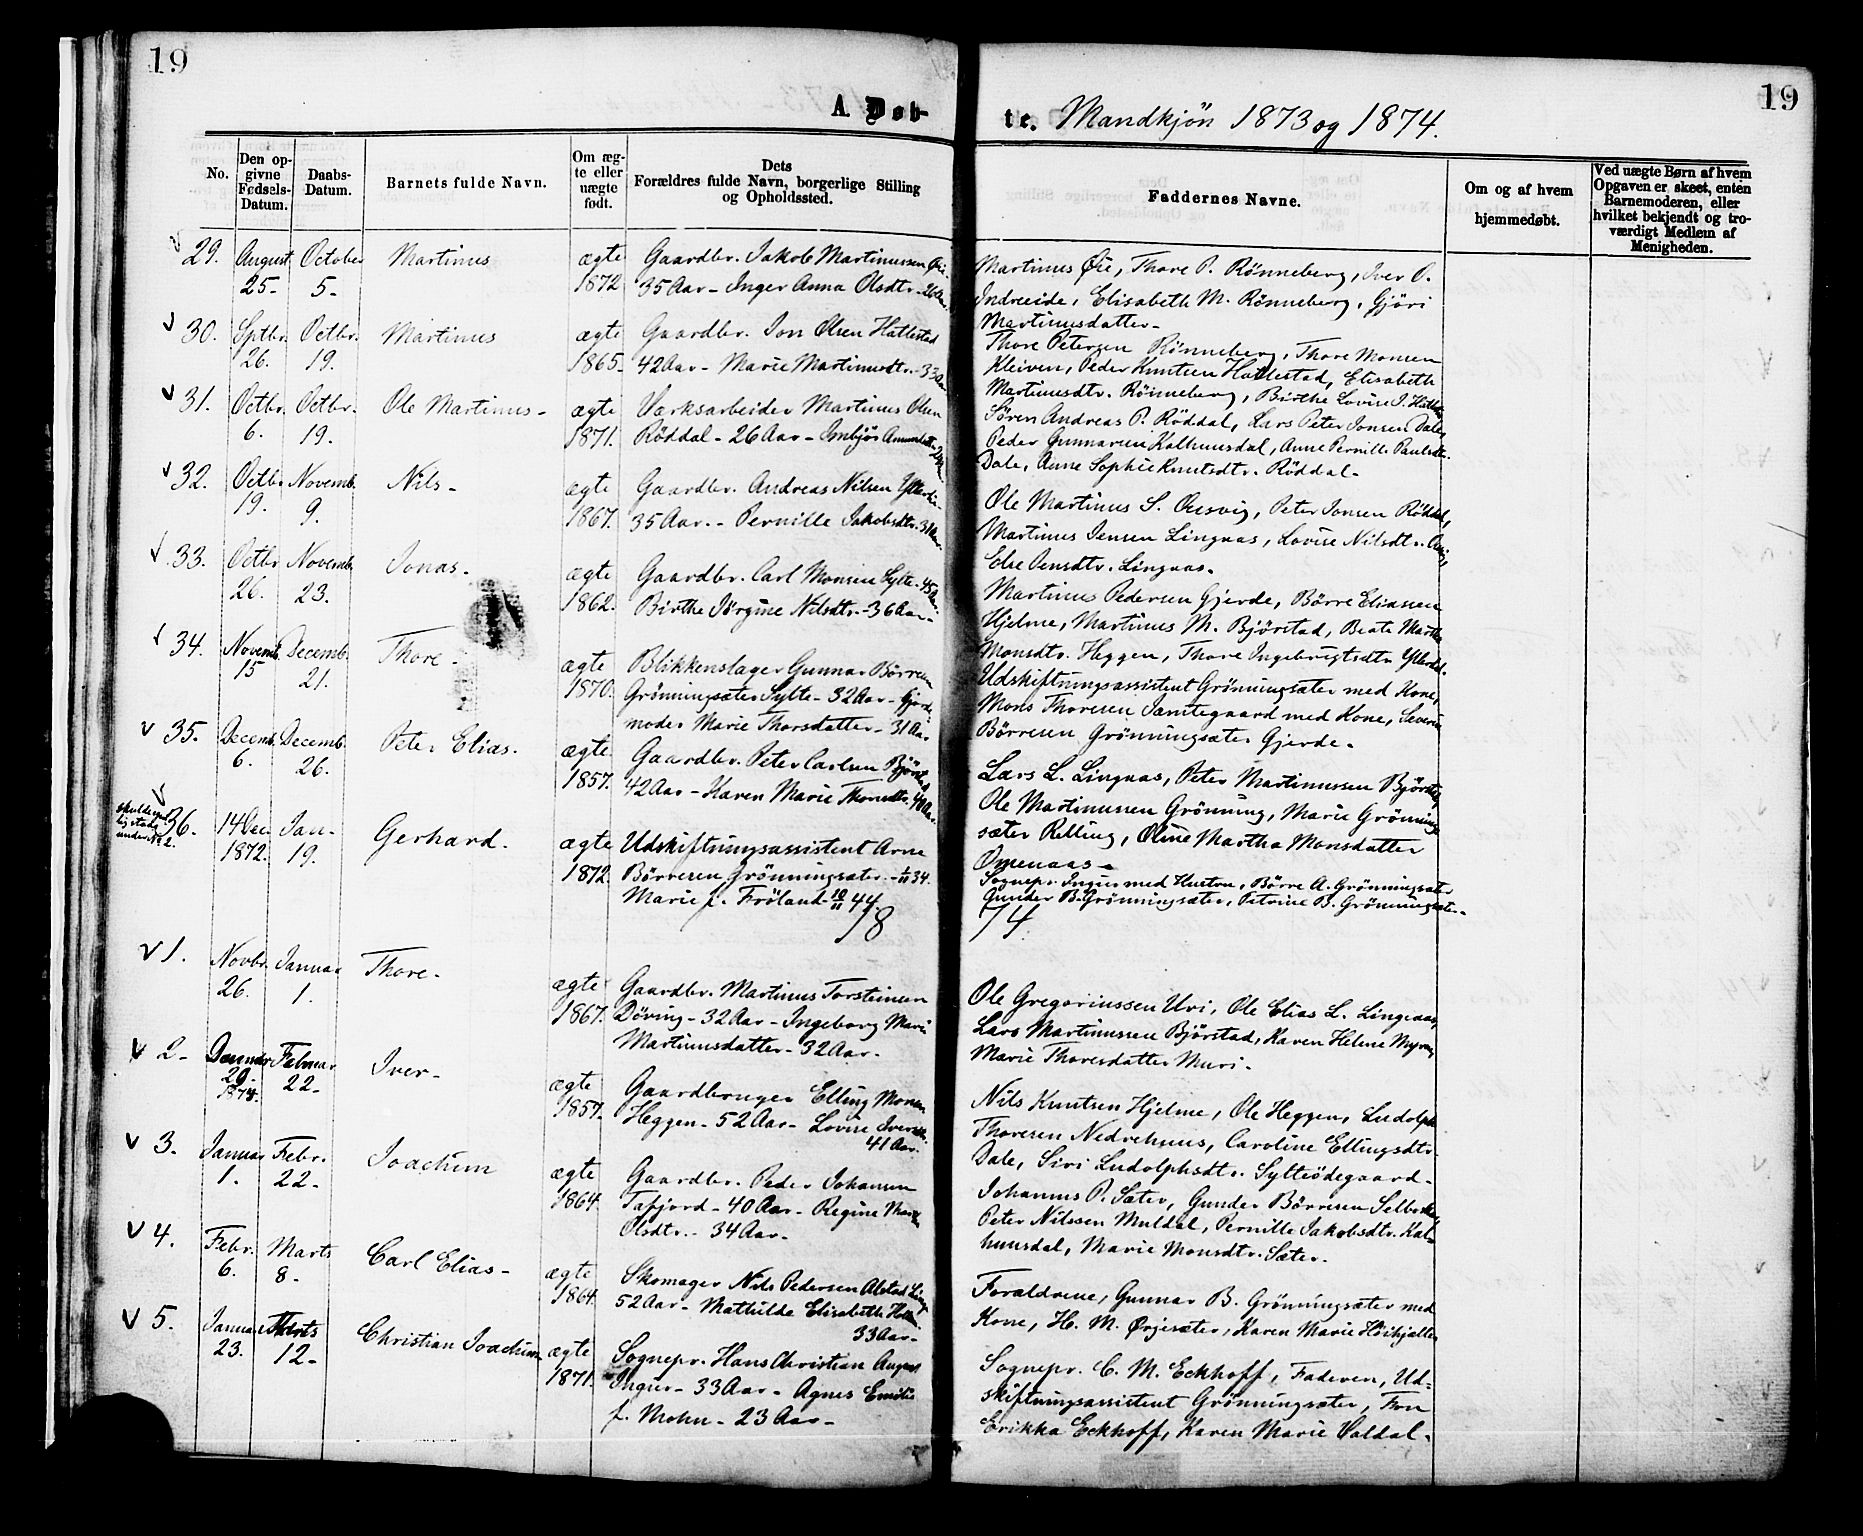 19
19
A. Døb-
te. Mandkjön 1873 og 1874.
No.
Den op-
givne
Fødsels-
Datum.
Daabs-
Datum.
Barnets fulde Navn.
Om æg-
te eller
uægte
født.
Dets
Forældres fulde Navn, borgerlige Stilling
og Opholdssted.
Faddernes Navne.
Om og af hvem
hjemmedøbt.
Ved uægte Børn af hvem
Opgaven er skeet, enten
Barnemoderen, eller
hvilket bekjendt og tro-
værdigt Medlem af
Menigheden.
29. August October Martinus ægte Gaardbr. Jakob Martinussen Øie
25- 5- 1872 35 Aar - Inger Anna Olsdtr.
Martinus Øie, Thore P. Rönneberg, Iver P.
Indreeide, Elisabeth M. Rönneberg, Gjöri
Martinusdatter -
30. Sptbr. Octbr. Martinus ægte Gaardbr. Jon Olsen Hattestad
26. 19. 1865. 42 Aar - Marie Martinusdtr. - 33 Aar
Thore Petersen Rönneberg, Thore Monsen
Kleiven, Peder Knutsen Hattestad, Elisabeth
Martinusdtr. Rönneberg, Birthe Lovise J.
31. Octbr. Octbr. Ole Martinus - ægte Værksarbeider Martinus Olsen
6. 19. 1871. Röddal - 26 Aar -
Sören Andreas P. Röddal, Lars Peter Jonsen Dale,
Peder Gunnarsen Kalhuusdal, Anne Pernille Paulsdtr.
Dale, Anne Sophie Knutsdtr. Röddal -
32. Octbr. Novemb. Nils - ægte Gaardbr. Andreas Nilsen
19. 9. 1867. 35 Aar. - Pernille Jakobsdtr. - 31 Aar.
Ole Martinus S. Pusvig, Peter Jonsen Röddal,
Martinus Jensen Lingaas, Lovise Nilsdtr.
Else Jensdtr. Lingaas.
33. Octbr. Novemb. Jonas. ægte Gaardbr. Carl Monsen Sylte - 45 Aar.
26. 23. 1862. Birthe Jörgine Nilsdtr. - 36 Aar -
Martinus Pedersen Gjerde, Börre Eliassen
Hjelme, Martinus M. Björstad, Beate Martha
Monsdtr. Heggen, Thore Ingebrigtsdtr.
34. Novemb. Decemb. Thore - ægte Blikkenslager Gunnar Börresen
15 21. 1870. Grönningsæter Sylte - 32 Aar - Gjorde-
moder Marie Thorsdatter - 31 Aar
Udskiftningsassistent Grönningsæter med Kone,
Mons Thoresen Jamtegaard med Kone, Severin
Börresen Grönningsæter Gjerde.
35. Decemb. Decemb. Peter Elias. ægte Gaardbr. Peter Carlsen
6. 26. 1857. 42 Aar - Karen Marie Thorsdtr. 40 Aar.
Lars L. Lingaas, Peter Martinussen Björstad,
Ole Martinussen Grönning, Marie Grönning-
sæter Relling, Oline Martha Monsdatter
Omenaas -
36. 14 Dec. Jan- Gerhard. ægte Udskiftningsassistent Arne
1872. 19. 1872. Börresen Grönningsæter. - 34.
Marie f. Fröland 44.
Sognepr. Ingier med Hustru, Börre A. Grönningsæter
Gunder B. Grönningsæter, Petrine B. Grönningsæter.
18
74.
1. Novbr. Januar Thore - ægte Gaardbr. Martinus Torsteinsen
26. 1. 1867. Döving - 32 Aar - Ingeborg Marie
Martinusdatter - 32 Aar.
Ole Gregoriussen Uri, Ole Elias L. Lingaas,
Lars Martinussen Björstad, Karen Helene Myren,
Marie Thoresdatter Muri.
2- Februar Iver - ægte Gaardbruger Elling Monsen
22- 1857. Heggen - 52 Aar - Lovise Iversdtr.
41 Aar.
Nils Knutsen Hjelme, Ole Heggen, Ludolph
Thoresen Nedrehuus, Caroline Ellingsdtr.
Dale, Siri Ludolphsdtr. Sylteödegaard.
3. Januar Febr. Joachim ægte Gaardbr. Peder Johansen
1. 22- 1864. Tafjord - 40 Aar - Regine
Olsdtr. - 34 Aar -
Johannus P. Sæter, Gunder Börresen
Peter Nilssen Muldal, Pernille Jakobsdtr. Kal-
huusdal, Marie Monsdtr. Sæter.
4. Febr. Marts Carl Elias - ægte Skomager Nils Pedersen Alstad
6. 8- 1864. 52 Aar - Mathilde Elisabeth
33 Aar -
Forældrene, Gunnar B. Grönningsæter med
Kone, H. M. Örjesæter, Karen Marie Höihjelle
5. Januar Marts Christian Joachim ægte Sognepr. Hans Christian August
23. 12- 1871. Ingier - 33 Aar - Agnes Emilie
f. Mohn - 23 Aar -
Sognepr. C. M. Eckhoff, Faderen, Ud-
skiftningsassistent Grönningsæter, Fru
Erikka Eckhoff, Karen Marie Valdal.